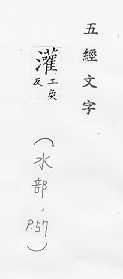 五經文字
灌工奐反
（水部，P.57）